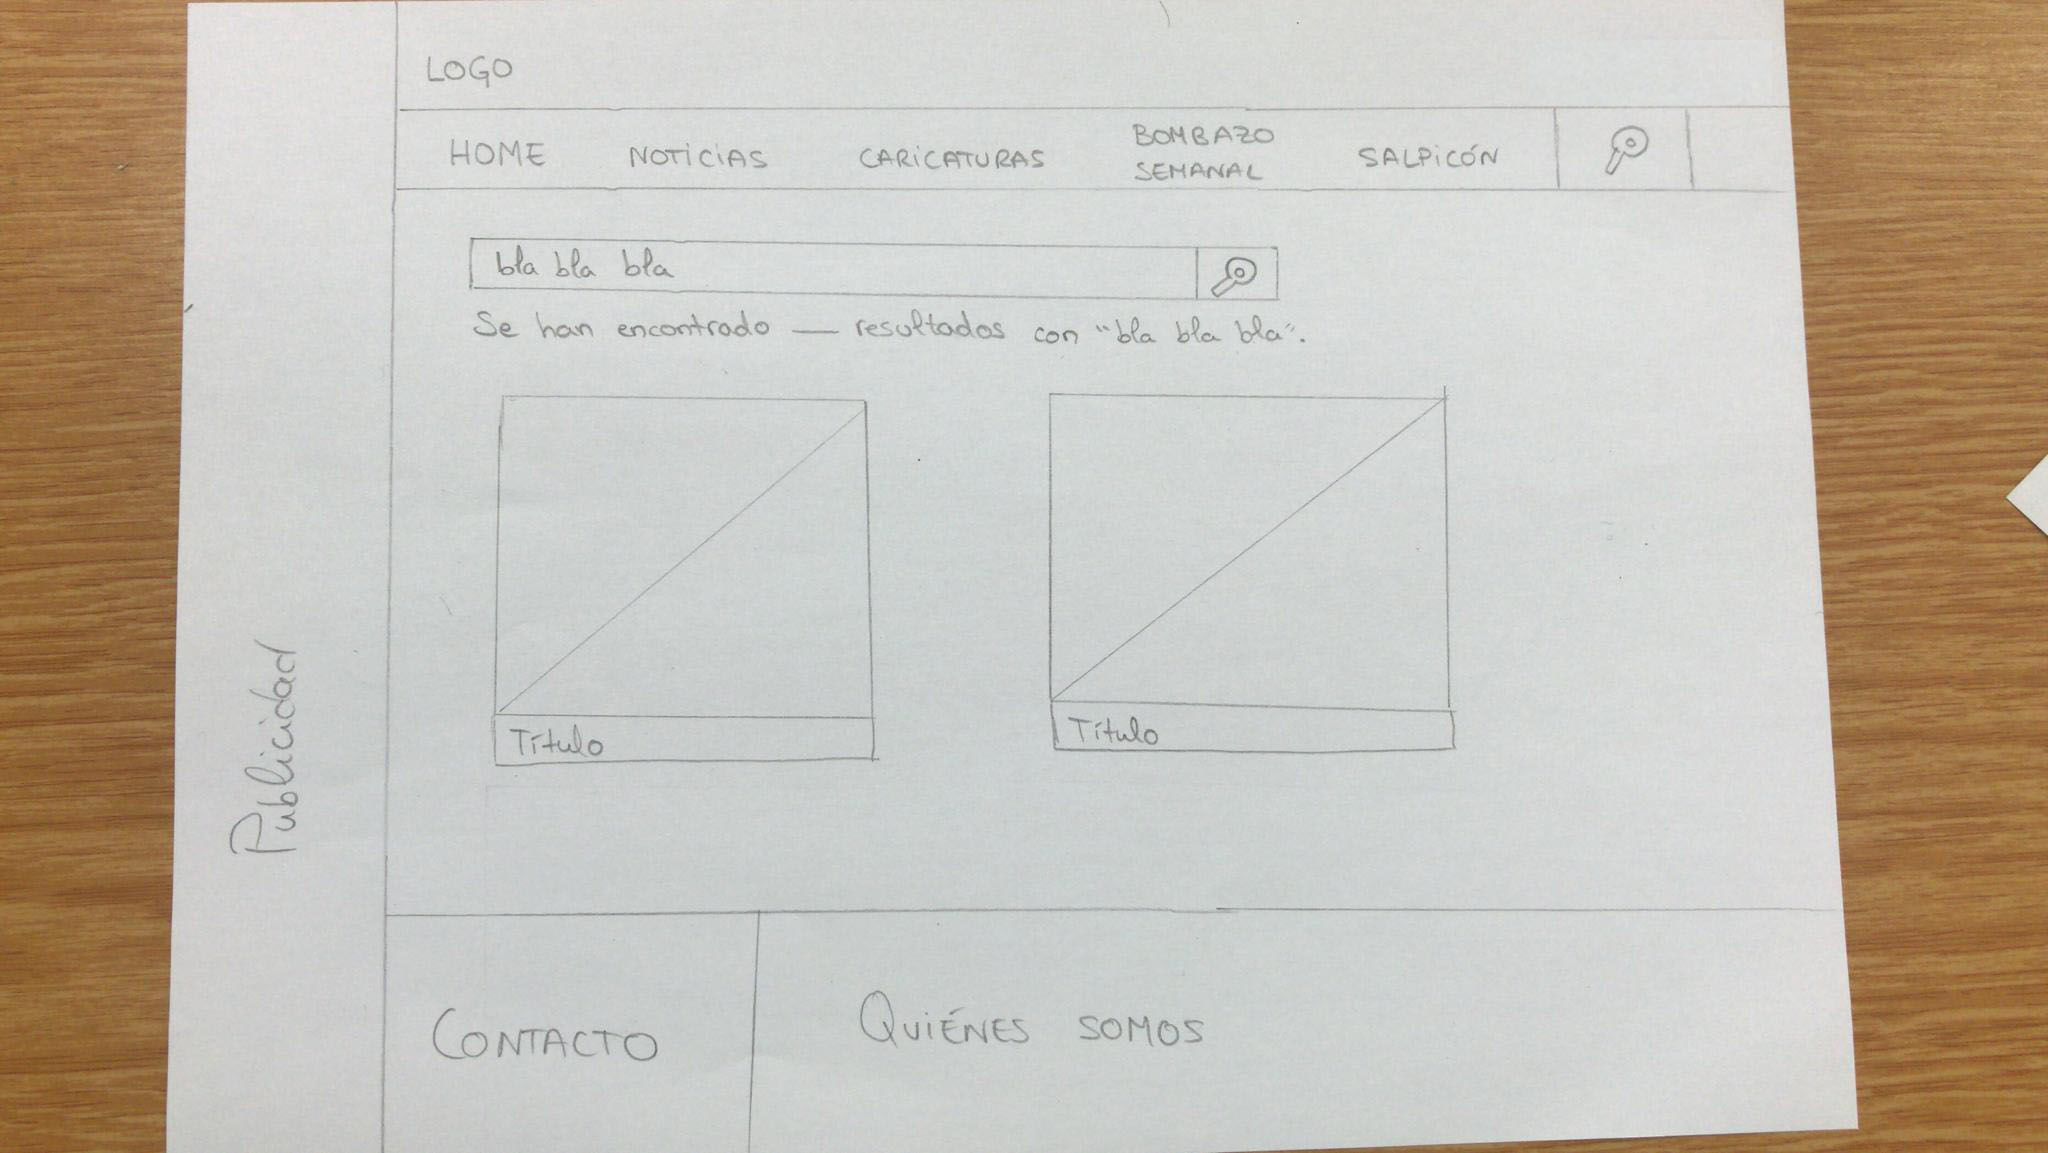 LOGO
HOME NOTICIAS CARICATURAS BOMBAZO SEMANAL SALPICÓN
bla bla bla
Se han encontrado — resultados con "bla bla bla".
Título
Título
Publicidad
CONTACTO
QUIÉNES SOMOS